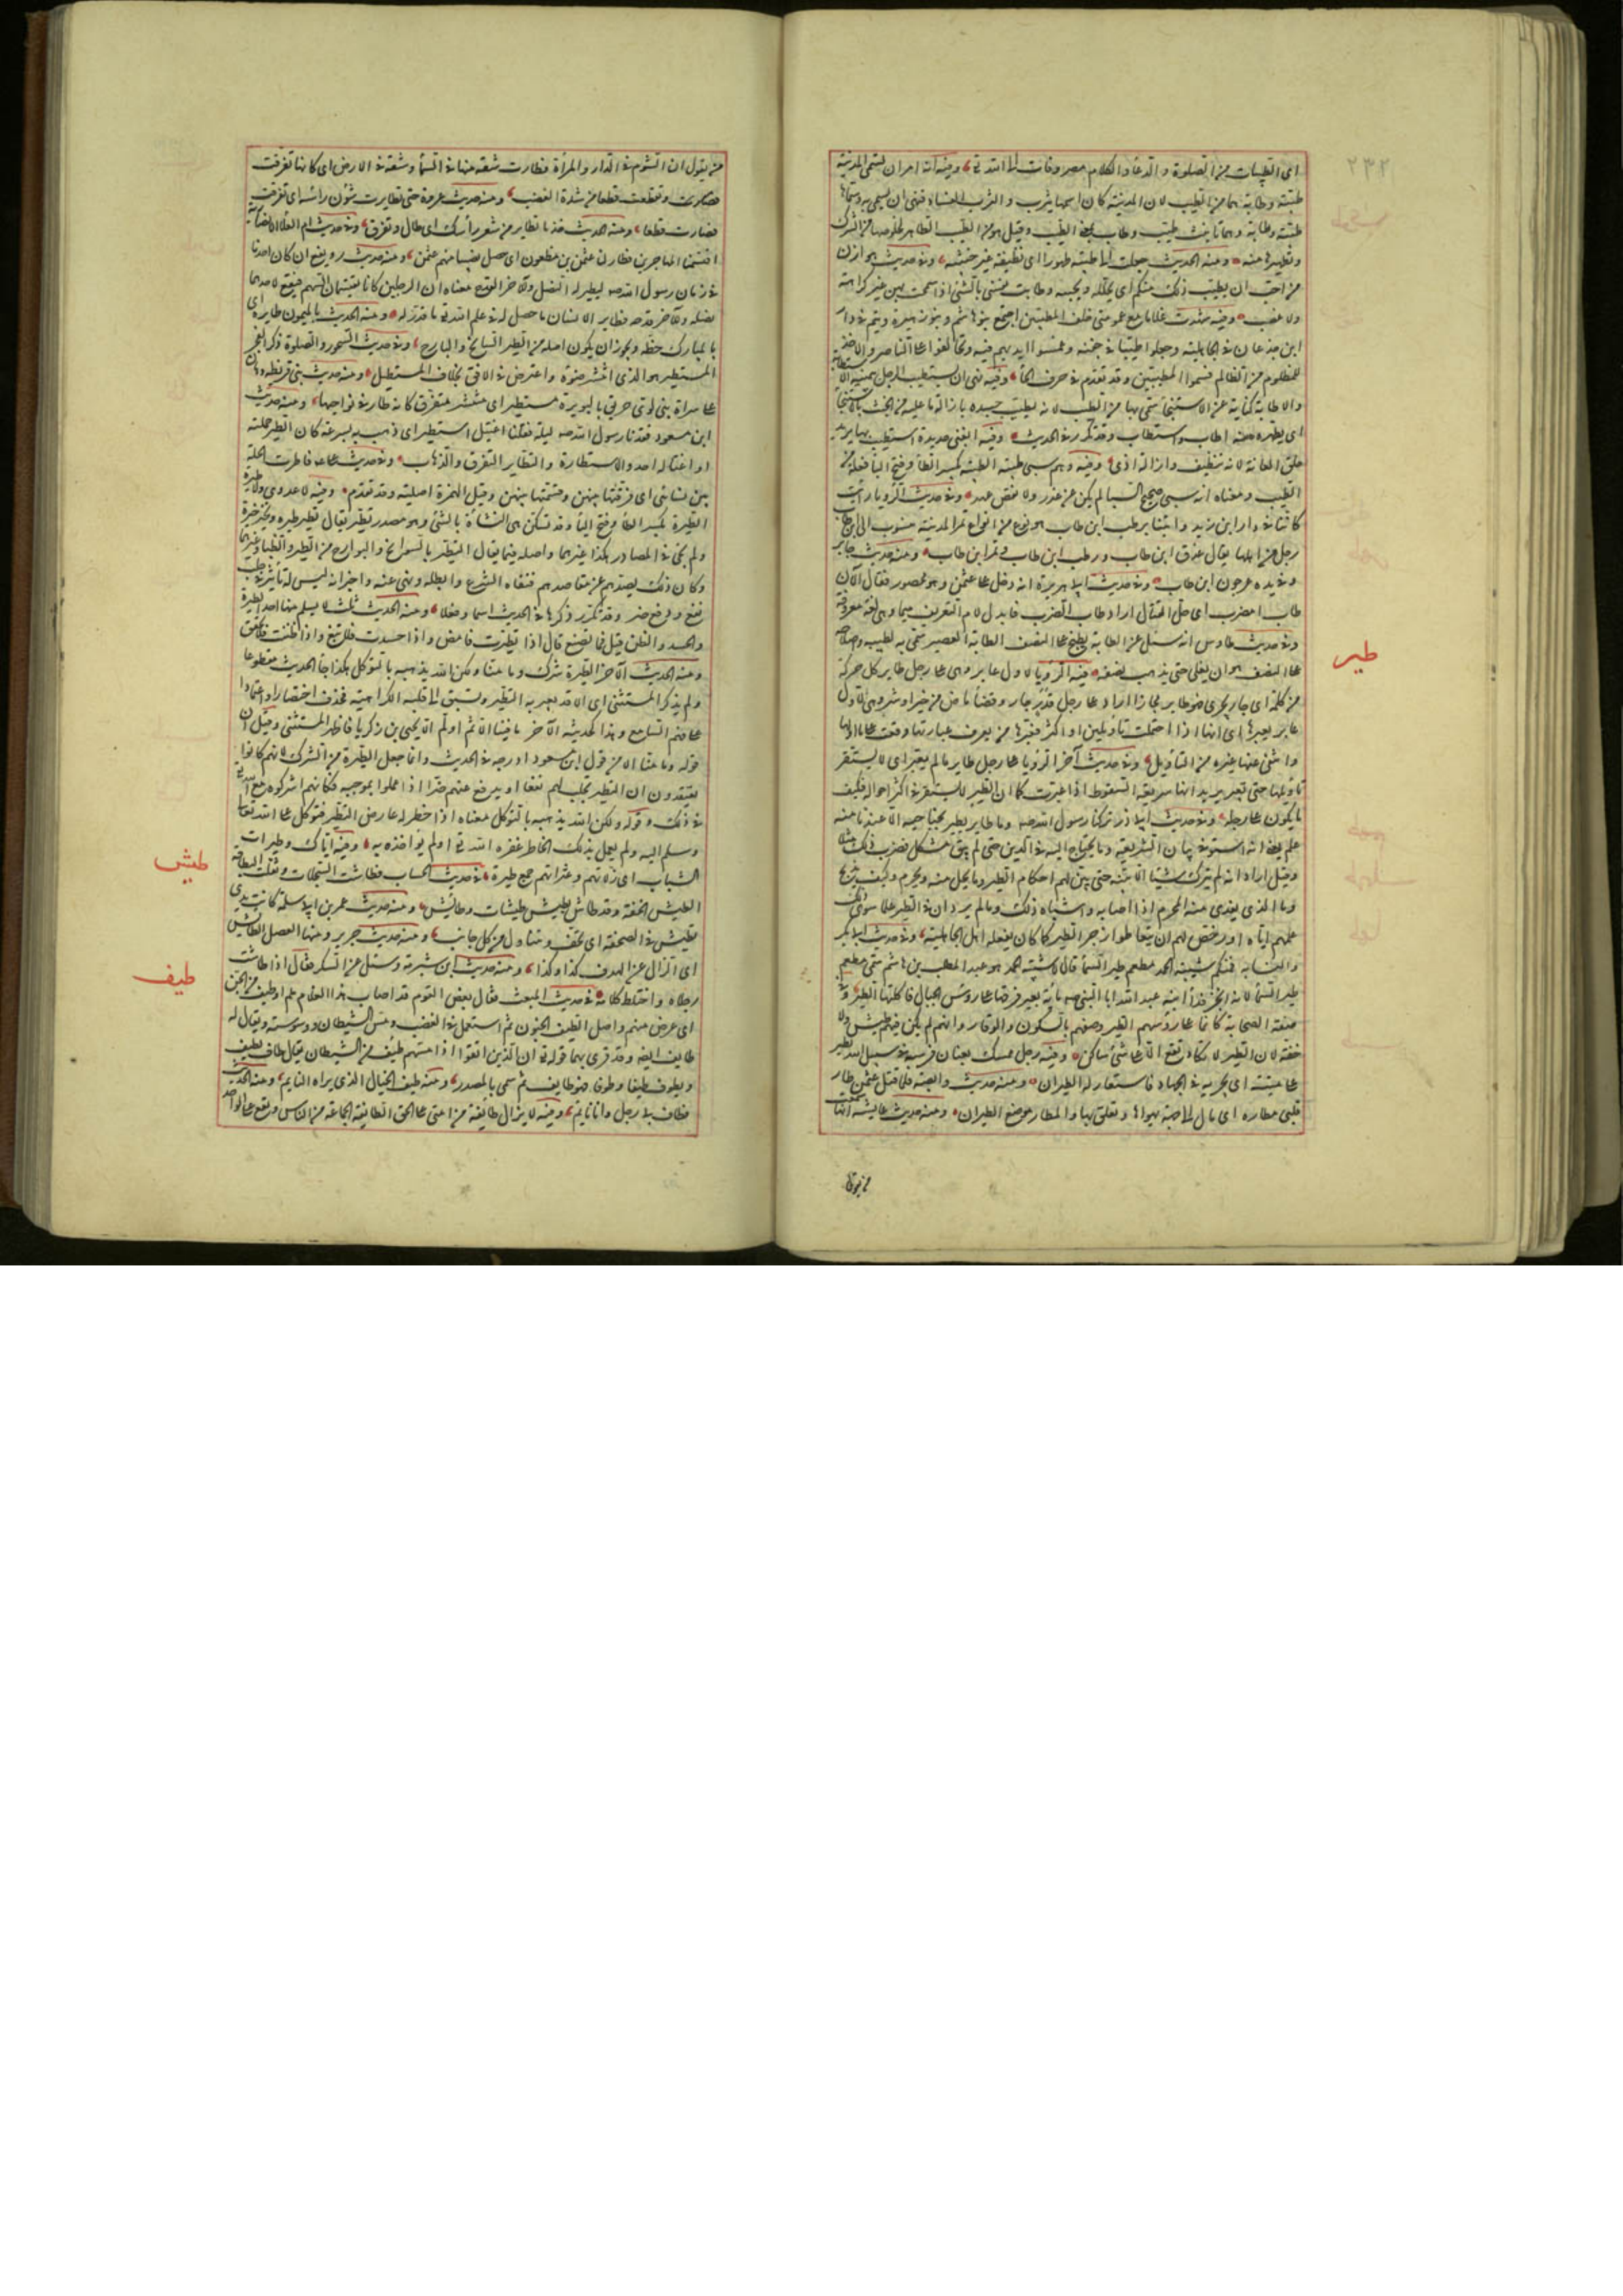 اى الطيبات من الصلوة والدعاء والكلام مصروفات الى الله تع وفيه انه امر ان تسمى المدينة
طيبة وطابة هما من الطيب لان المدينة كان اسمها يثرب والثرب الفساد فنهى ان يسمى به وسماها
طيبة وطابة وهما تانيث طيب وطاب بمعنى الطيب وقيل هو من الطيب الطاهر لخلوصها من الشرك
وتطهيرها منه ومنه الحديث جعلت لى الارض طيبة طهورا اى نظيفة غير خبيثة وفى حديث هوازن
من احب ان يطيب ذلك منكم اى يحلله ويبيحه وطابت نفسى بالشئ اذا سمحت به من غير كراهة
ولا غضب وفيه شهدت غلاما مع عمومتى حلف المطيبين اجتمع بنو هاشم وبنو زهرة وتيم فى دار
ابن جدعان فى الجاهلية وجعلوا طيبا فى جفنة وغمسوا ايديهم فيه وتحالفوا على التناصر والاخذ
للمظلوم من الظالم فسموا المطيبين وقد تقدم فى حرف الحاء وفيه نهى ان يستطيب الرجل بيمينه الاستطابة
والاطابة كناية عن الاستنجاء سمى بها من الطيب لانه يطيب جسده بازالة ما عليه من الخبث بالاستنجاء
اى يطهره منه اطاب واستطاب وقد تكرر فى الحديث وفيه ابغنى حديدة استطيب بها يريد
حلق العانة لانه تنظيف وازالة اذى وفيه وهم سبى طيبة الطيبة بكسر الطاء وفتح الياء فعلة من
الطيب ومعناه انه سبى صحيح السباء لم يكن عن غدر ولا نقض عهد وفى حديث الرويا رايت
كاننا فى دار ابن زيد واتينا برطب ابن طاب هو نوع من انواع تمر المدينة منسوب الى ابن طاب
رجل من اهلها يقال عذق ابن طاب ورطب ابن طاب وتمر ابن طاب ومنه حديث جابر
وفى يده عرجون ابن طاب وفى حديث ابى هريرة انه دخل على عثمن وهو محصور فقال الان
طاب امضرب اى حل القتال اراد طاب الضرب فابدل لام التعريف ميما وهى لغة معروفة
وفى حديث طاوس انه سئل عن الطابة تطبخ على النصف الطابة العصير سمى به لطيبه واصلاحه
على النصف هو ان يغلى حتى يذهب نصفه فيه الرؤيا لاول عابر وهى على رجل طاير كل حركة
من كلمة اى جار يجرى فهو طاير مجازا اراد على رجل قدر جار وقضاء ماض من خير او شر وهى لاول
عابر يعبرها اى انها اذا احتملت تاويلين او اكثر فعبرها من يعرف عبارتها وقعت على ما اولها
وانتفى عنها غيره من التاويل وفى حديث آخر الرؤيا على رجل طاير مالم يعبر اى لا يستقر
تاويلها حتى تعبر يريد انها سريعة السقوط اذا عبرت كما ان الطير لا يستقر فى اكثر احواله فكيف
ما يكون على رجله وفى حديث ابى ذر تركنا رسول الله صه وما طاير يطير بجناحيه الا عندنا منه
علم يعنى انه استوفى بيان الشريعة وما يحتاج اليه فى الدين حتى لم يبق مشكل فضرب ذلك مثلا
وقيل اراد انه لم يترك شيئا الا بينه حتى بين لهم احكام الطير وما يحل منه ويحرم وكيف يذبح
وما الذى يفدى منه المحرم اذا اصابه واشباه ذلك ولم يرد ان فى الطير علما سوى ذلك
علمهم اياه او رخص لهم ان يتعاطوا زجر الطير كما كان يفعله اهل الجاهلية وفى حديث ابى بكر
والنسابة فمنكم شيبة الحمد مطعم طير السماء قال لا شيبة الحمد هو عبد المطلب بن هاشم سمى مطعم
طير السماء لانه لما نحر فداء ابنه عبد الله ابى النبى صه ماية بعير فرقها على روس الجبال فاكلتها الطير وفى
صفة الصحابة كانما على روسهم الطير وصفهم بالسكون والوقار وانهم لم يكن فيهم طيش ولا
خفة لان الطير لا تكاد تقع الا على شئ ساكن وفيه رجل ممسك بعنان فرسه فى سبيل الله يطير
على متنه اى يجريه فى الجهاد فاستعار له الطيران ومنه حديث وابصة فلما قتل عثمن طار
قلبى مطاره اى مال الى جهة يهواها وتعلق بها والمطار موضع الطيران ومنه حديث عايشة انها سمعت
من يقول
طير
من يقول ان الشوم فى الدار والمرأة فطارت شقة منها فى السماء وشقة فى الارض اى كانها تفرقت
وتقطعت قطعا من شدة الغضب ومنه حديث عروة حتى تطايرت شؤن رأسه اى تفرقت
فصارت قطعا ومنه الحديث خذ ما تطاير من شعر رأسك اى طال وتفرق وفى حديث ام العلاء الانصارية
اقتسمنا المهاجرين فطار لنا عثمن بن مظعون اى حصل نصيبنا منهم عثمن ومنه حديث رويفع ان كان احدنا
فى زمان رسول الله صه ليطير له النصل وللآخر القدح معناه ان الرجلين كانا يقتسمان السهم فيقع لاحدهما
نصله وللآخر قدحه وطاير الانسان ما حصل له فى علم الله تع ما قدر له ومنه الحديث بالميمون طايره اى
بالمبارك حظه ويجوز ان يكون اصله من الطير السانح والبارح وفى حديث السحور والصلوة ذكر الفجر
المستطير هو الذى انتشر ضوءه واعترض فى الافق بخلاف المستطيل ومنه حديث بنى قريظة وهان
على سراة بنى لوى حريق بالبويرة مستطير اى منتشر متفرق كانه طار فى نواحيها ومنه حديث
ابن مسعود فقدنا رسول الله صه ليلة فقلنا اغتيل استطير اى ذهب به بسرعة كان الطير حملته
او اغتاله احد والاستطارة والتطاير التفرق والذهاب وفى حديث على فاطرت الحلة
بين نسائى اى فرقتها بينهن وقسمتها بينهن وقيل الهمزة اصلية وقد تقدم وفيه لا عدوى ولا طيرة
الطيرة بكسر الطاء وفتح الياء وقد تسكن هى التشاؤم بالشئ وهو مصدر تطير يقال تطير طيرة وتخير خيرة
ولم يجئ من المصادر هكذا غيرهما واصله فيما يقال التطير بالسوانح والبوارح من الطير والظباء وغيرهما
وكان ذلك يصدهم عن مقاصدهم فنفاه الشرع وابطله ونهى عنه واخبر انه ليس له تأثير فى جلب
نفع ودفع ضر وقد تكرر ذكرها فى الحديث اسما وفعلا ومنه الحديث ثلث لا يسلم منها احد الطيرة
والحسد والظن قيل فما نصنع قال اذا تطيرت فامض واذا حسدت فلا تبغ واذا ظننت فلا تحقق
ومنه الحديث الآخر الطيرة شرك وما منا ولكن الله يذهبه بالتوكل هكذا جاء الحديث مقطوعا
ولم يذكر المستثنى اى الا قد يعتريه التطير وتسبق الى قلبه الكراهية فحذف اختصارا واعتمادا
على فهم السامع وهذا كحديثه الآخر ما فينا الا من هم او لم الا يحيى بن زكريا فاظهر المستثنى وقيل ان
قوله وما منا الا من قول ابن مسعود ادرجه فى الحديث وانما جعل الطيرة من الشرك لانهم كانوا
يعتقدون ان التطير يجلب لهم نفعا او يدفع عنهم ضرا اذا عملوا بموجبه فكانهم اشركوه مع الله
فى ذلك وقوله ولكن الله يذهبه بالتوكل معناه اذا خطر له عارض التطير فتوكل على الله تعالى
وسلم اليه ولم يعمل بذلك الخاطر غفره الله تع له ولم يؤاخذه به وفيه اياك وطيرات
الشباب اى زلاتهم وعثراتهم جمع طيرة فى حديث الحساب فطاشت السجلات وثقلت البطاقة
الطيش الخفة وقد طاش يطيش طيشا وطائش ومنه حديث عمر بن ابى سلمة كانت يدى
تطيش فى الصحفة اى تخف وتتناول من كل جانب ومنه حديث جرير ومنها العصل الطائش
اى الزال عن الهدف كذا وكذا ومنه حديث ابن شبرمة وسئل عن السكر فقال اذا طاشت
رجلاه واختلط كلامه فى حديث المبعث فقال بعض القوم قد اصاب هذا الغلام لمم او طيف من الجن
اى عرض منهم واصل الطيف الجنون ثم استعمل فى الغضب ومس الشيطان ووسوسته ويقال له
طايف ايضا وقد قرئ بهما قوله تع ان الذين اتقوا اذا مسهم طيف من الشيطان يقال طاف يطيف
ويطوف طيفا وطوفا فهو طايف ثم سمى بالمصدر ومنه طيف الخيال الذى يراه النايم ومنه الحديث
فطاف بى رجل وانا نايم وفيه لا يزال طايفة من امتى على الحق الطايفة الجماعة من الناس وتقع على الواحد
طيش
طيف